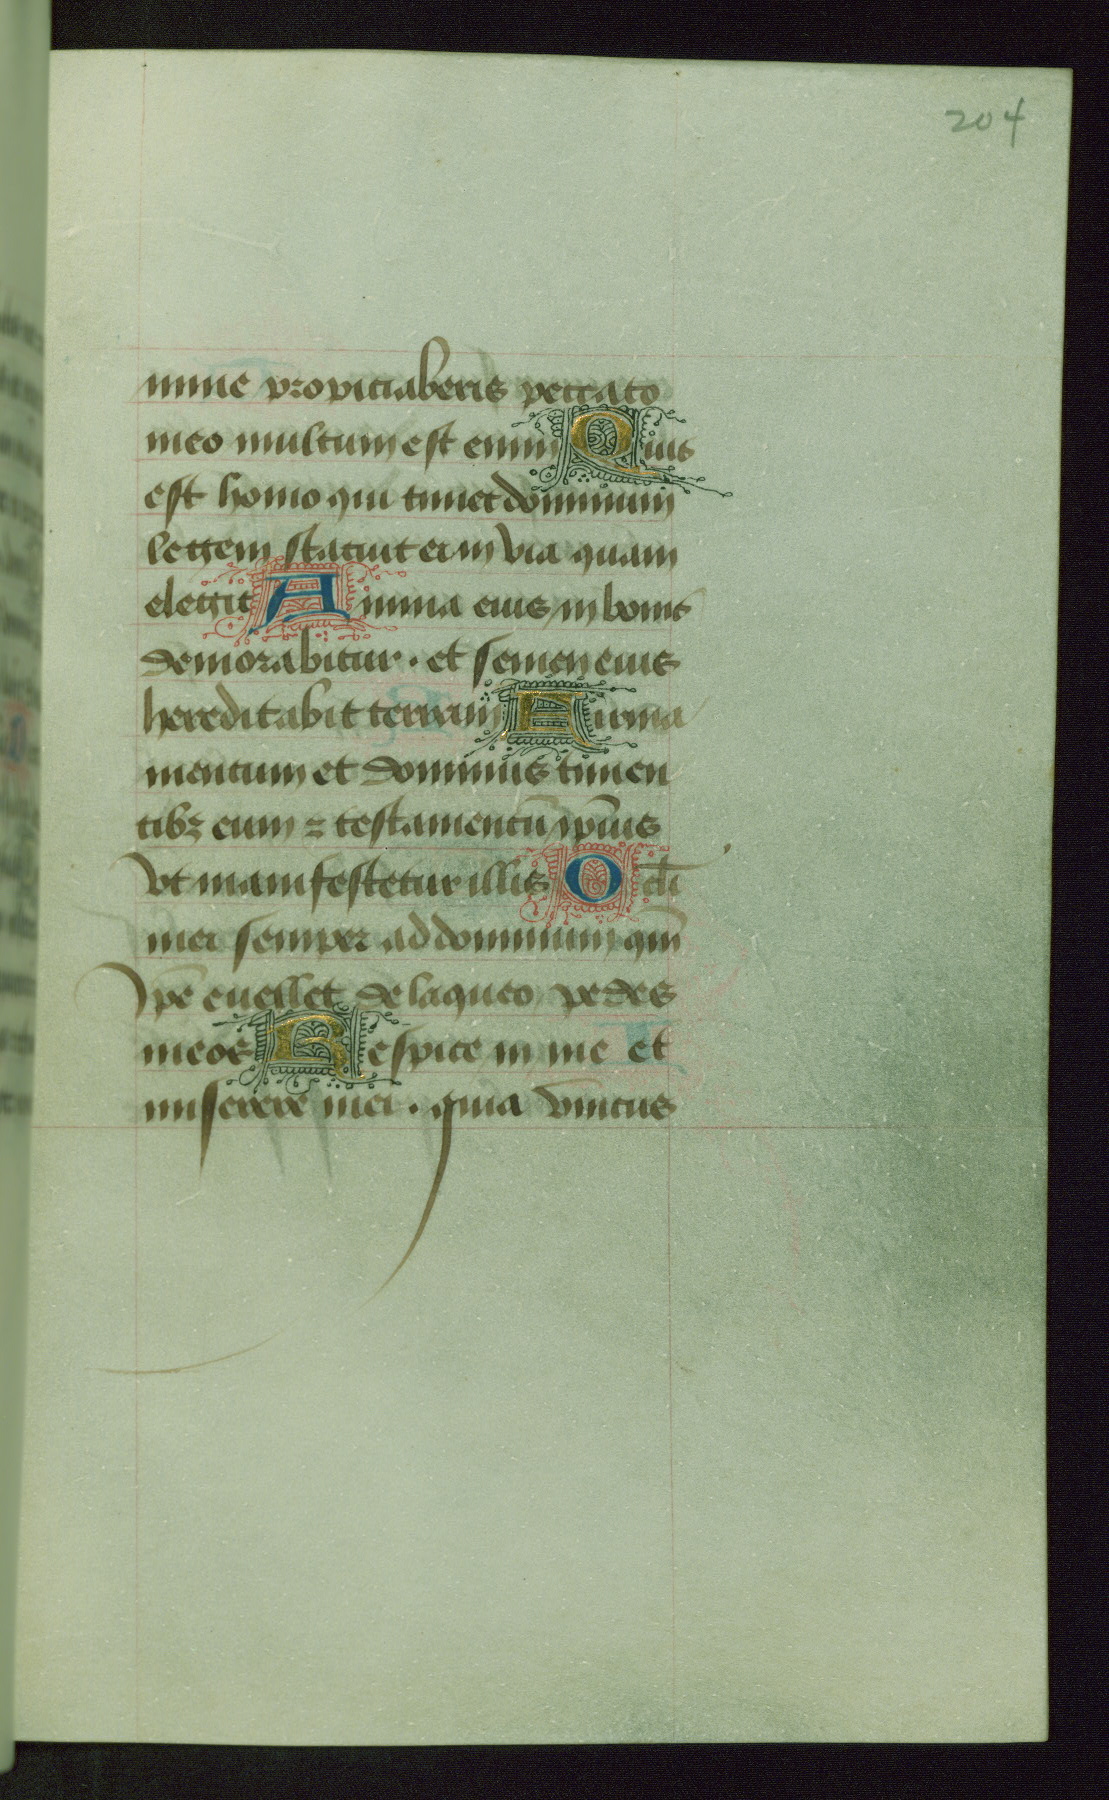 204
mine propiciaberis peccato
meo multum est enim Quis
est homo qui timet dominum
legem statuit ei in via quam
elegit Anima eius in bonis
demorabitur . et semen eius
hereditabit terram Firma
mentum et dominus timen
tibꝫ eum ⁊ testamentū ip̄ius
vt manifestetur illis Ocli
mei semper ad dominum qm̄
Ip̄e euellet de laqueo pedes
meos Respice in me et
miserere mei . quia vnicus